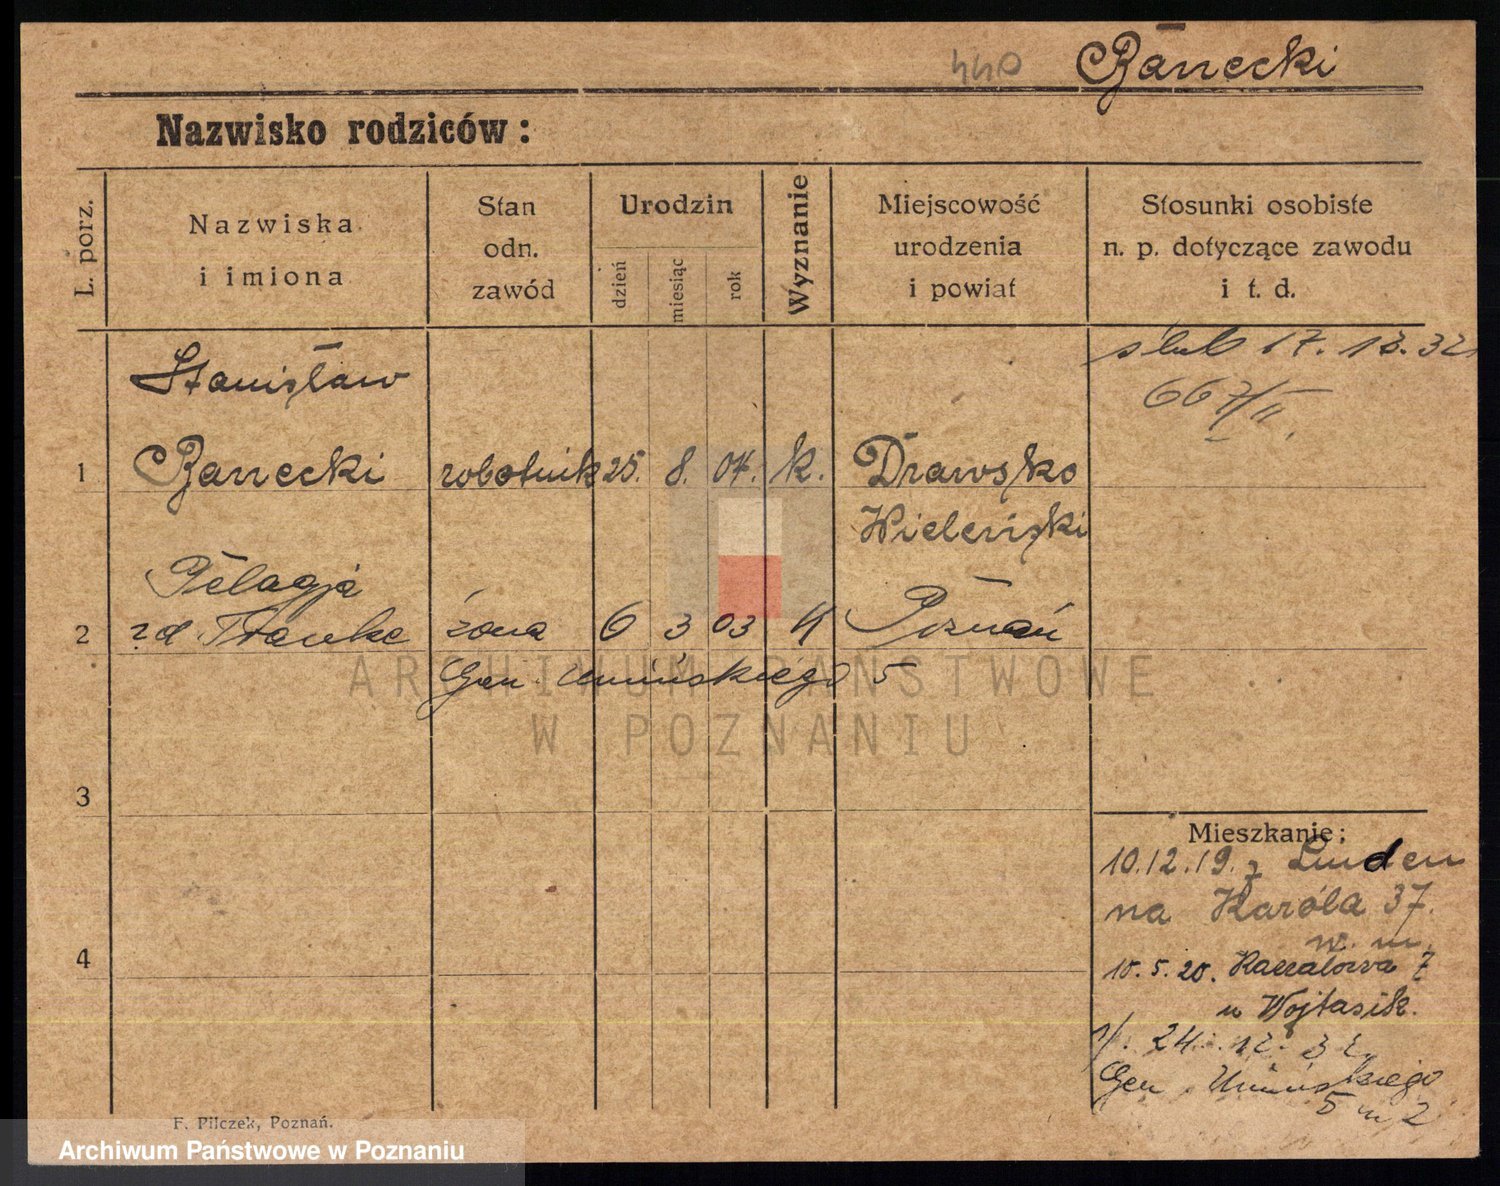 440 Banecki
Nazwisko rodziców:
L. porz.
Nazwiska
i imiona
Stan
odn.
zawód
Urodzin
dzień
miesiąc
rok
Wyznanie
Miejscowość
urodzenia
i powiat
Stosunki osobiste
n. p. dotyczące zawodu
i t. d.
ślub 17. 12. 32
667/II
Stanisław
1 Banecki robotnik 25. 8. 04. k. Drawsko
Wieleński
Pelagja
2 zd. żona 6 3 03 k Poznań
Gen. Umińskiego 5
3
4
Mieszkanie:
10.12.19. z Linden
na Karóla 37.
w. m.
10.5.20. 7
u Wojtasik.
24. 12. 32
Gen Umińskiego
5 m 2
F. Pilczek, Poznań.
ARCHIWUM PAŃSTWOWE
W POZNANIU
Archiwum Państwowe w Poznaniu